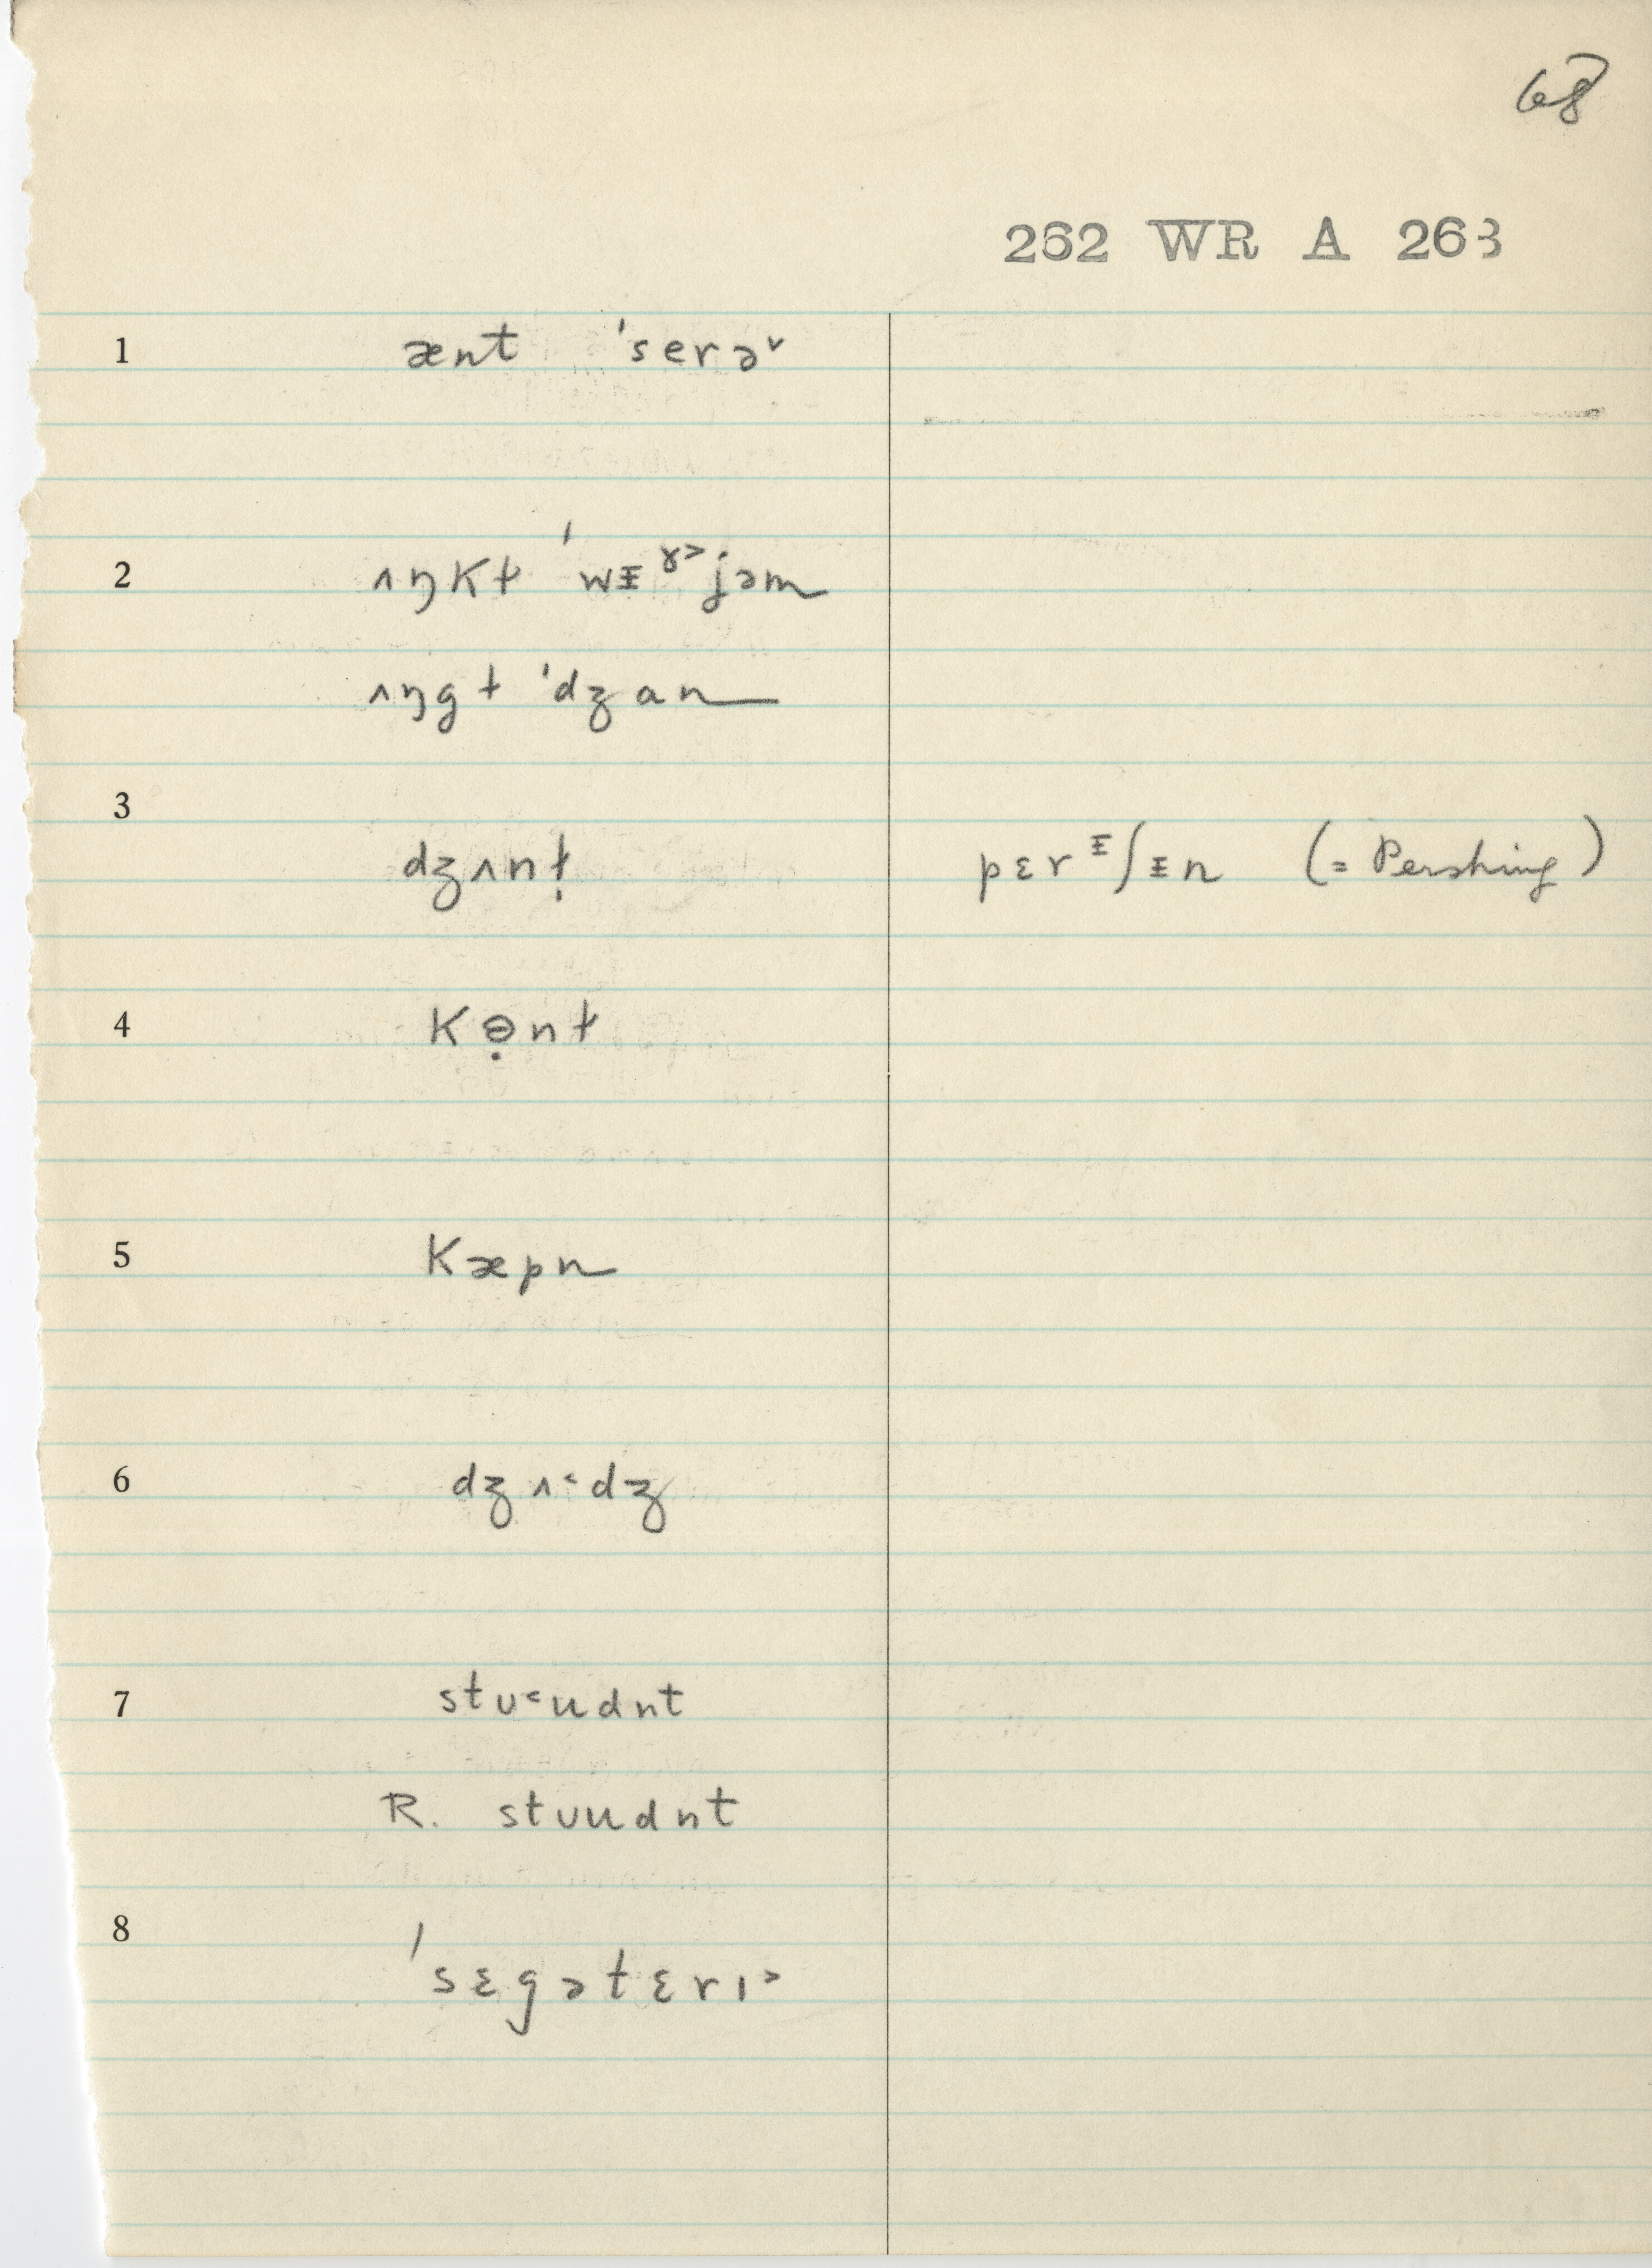 68
262 WR A 263
1 ænt ˈserəᵛ
2 ʌŋkɫ ˈwᵻᵞ˃jəm
ʌŋgɫ ˈdʒan
3
dʒʌnɫ̣ pɛrᵻʃᵻn (= Pershing)
4 kɵ̣nɫ
5 kæpn
6 dʒʌ˂dʒ
7 stʊ˂udnt
R. stʊudnt
8
ˈsɛgətɛrɪ˃